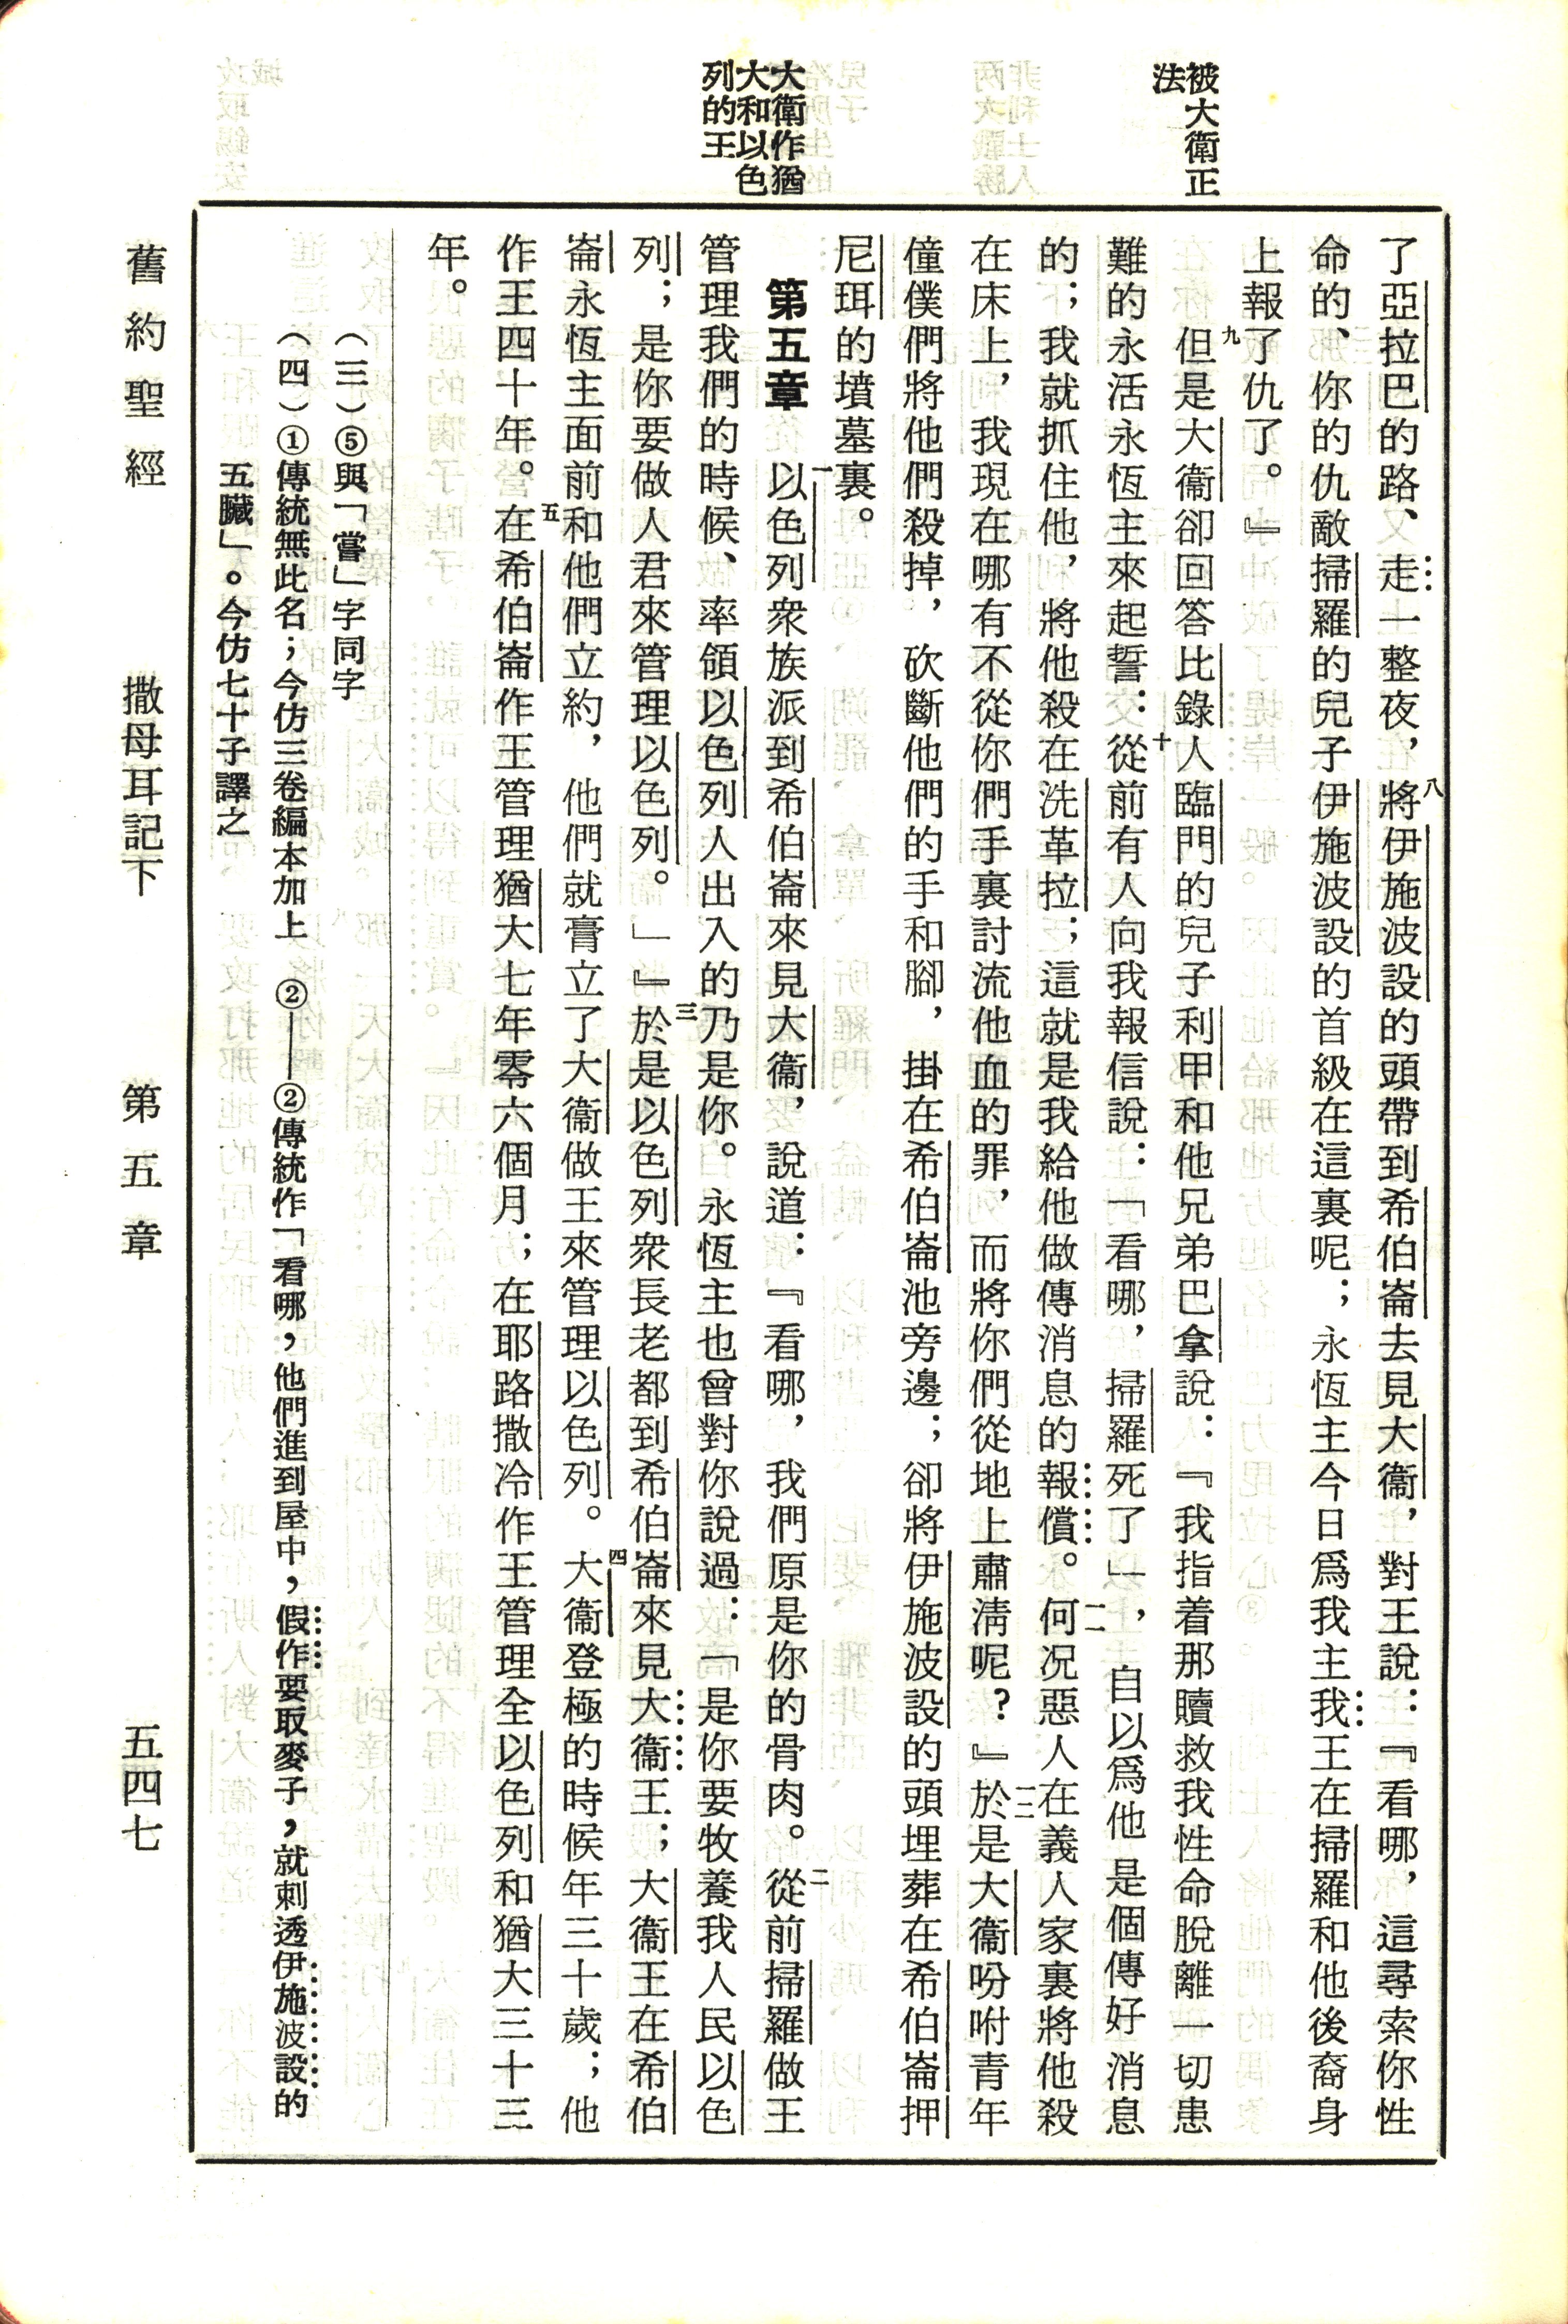 被大衛正
法
大衛作猶
大和以色
列的王
了亞拉巴的路、走一整夜，八將伊施波設的頭帶到希伯崙去見大衞，對王說：『看哪，這尋索你性
命的、你的仇敵掃羅的兒子伊施波設的首級在這裏呢；永恆主今日爲我主我王在掃羅和他後裔身
上報了仇了。』
九但是大衞卻回答比錄人臨門的兒子利甲和他兄弟巴拿說：『我指着那贖救我性命脫離一切患
難的永活永恆主來起誓：十從前有人向我報信說：「看哪，掃羅死了」，自以爲他是個傳好消息
的；我就抓住他，將他殺在洗革拉；這就是我給他做傳消息的報償。一一何況惡人在義人家裏將他殺
在床上，我現在哪有不從你們手裏討流他血的罪，而將你們從地上肅淸呢？』一二於是大衞吩咐青年
僮僕們將他們殺掉，砍斷他們的手和腳，掛在希伯崙池旁邊；卻將伊施波設的頭埋葬在希伯崙押
尼珥的墳墓裏。
第五章　一以色列衆族派到希伯崙來見大衞，說道：『看哪，我們原是你的骨肉。二從前掃羅做王
管理我們的時候、率領以色列人出入的乃是你。永恆主也曾對你說過：「是你要牧養我人民以色
列；是你要做人君來管理以色列。」』三於是以色列衆長老都到希伯崙來見大衞王；大衞王在希伯
崙永恆主面前和他們立約，他們就膏立了大衞做王來管理以色列。四大衞登極的時候年三十歲；他
作王四十年。五在希伯崙作王管理猶大七年零六個月；在耶路撒冷作王管理全以色列和猶大三十三
年。
（三）⑤與「嘗」字同字
（四）①傳統無此名；今仿三卷編本加上　②——②傳統作「看哪，他們進到屋中，假作要取麥子，就刺透伊施波設的
五臟」。今仿七十子譯之
舊約聖經　撒母耳記下　第五章　五四七